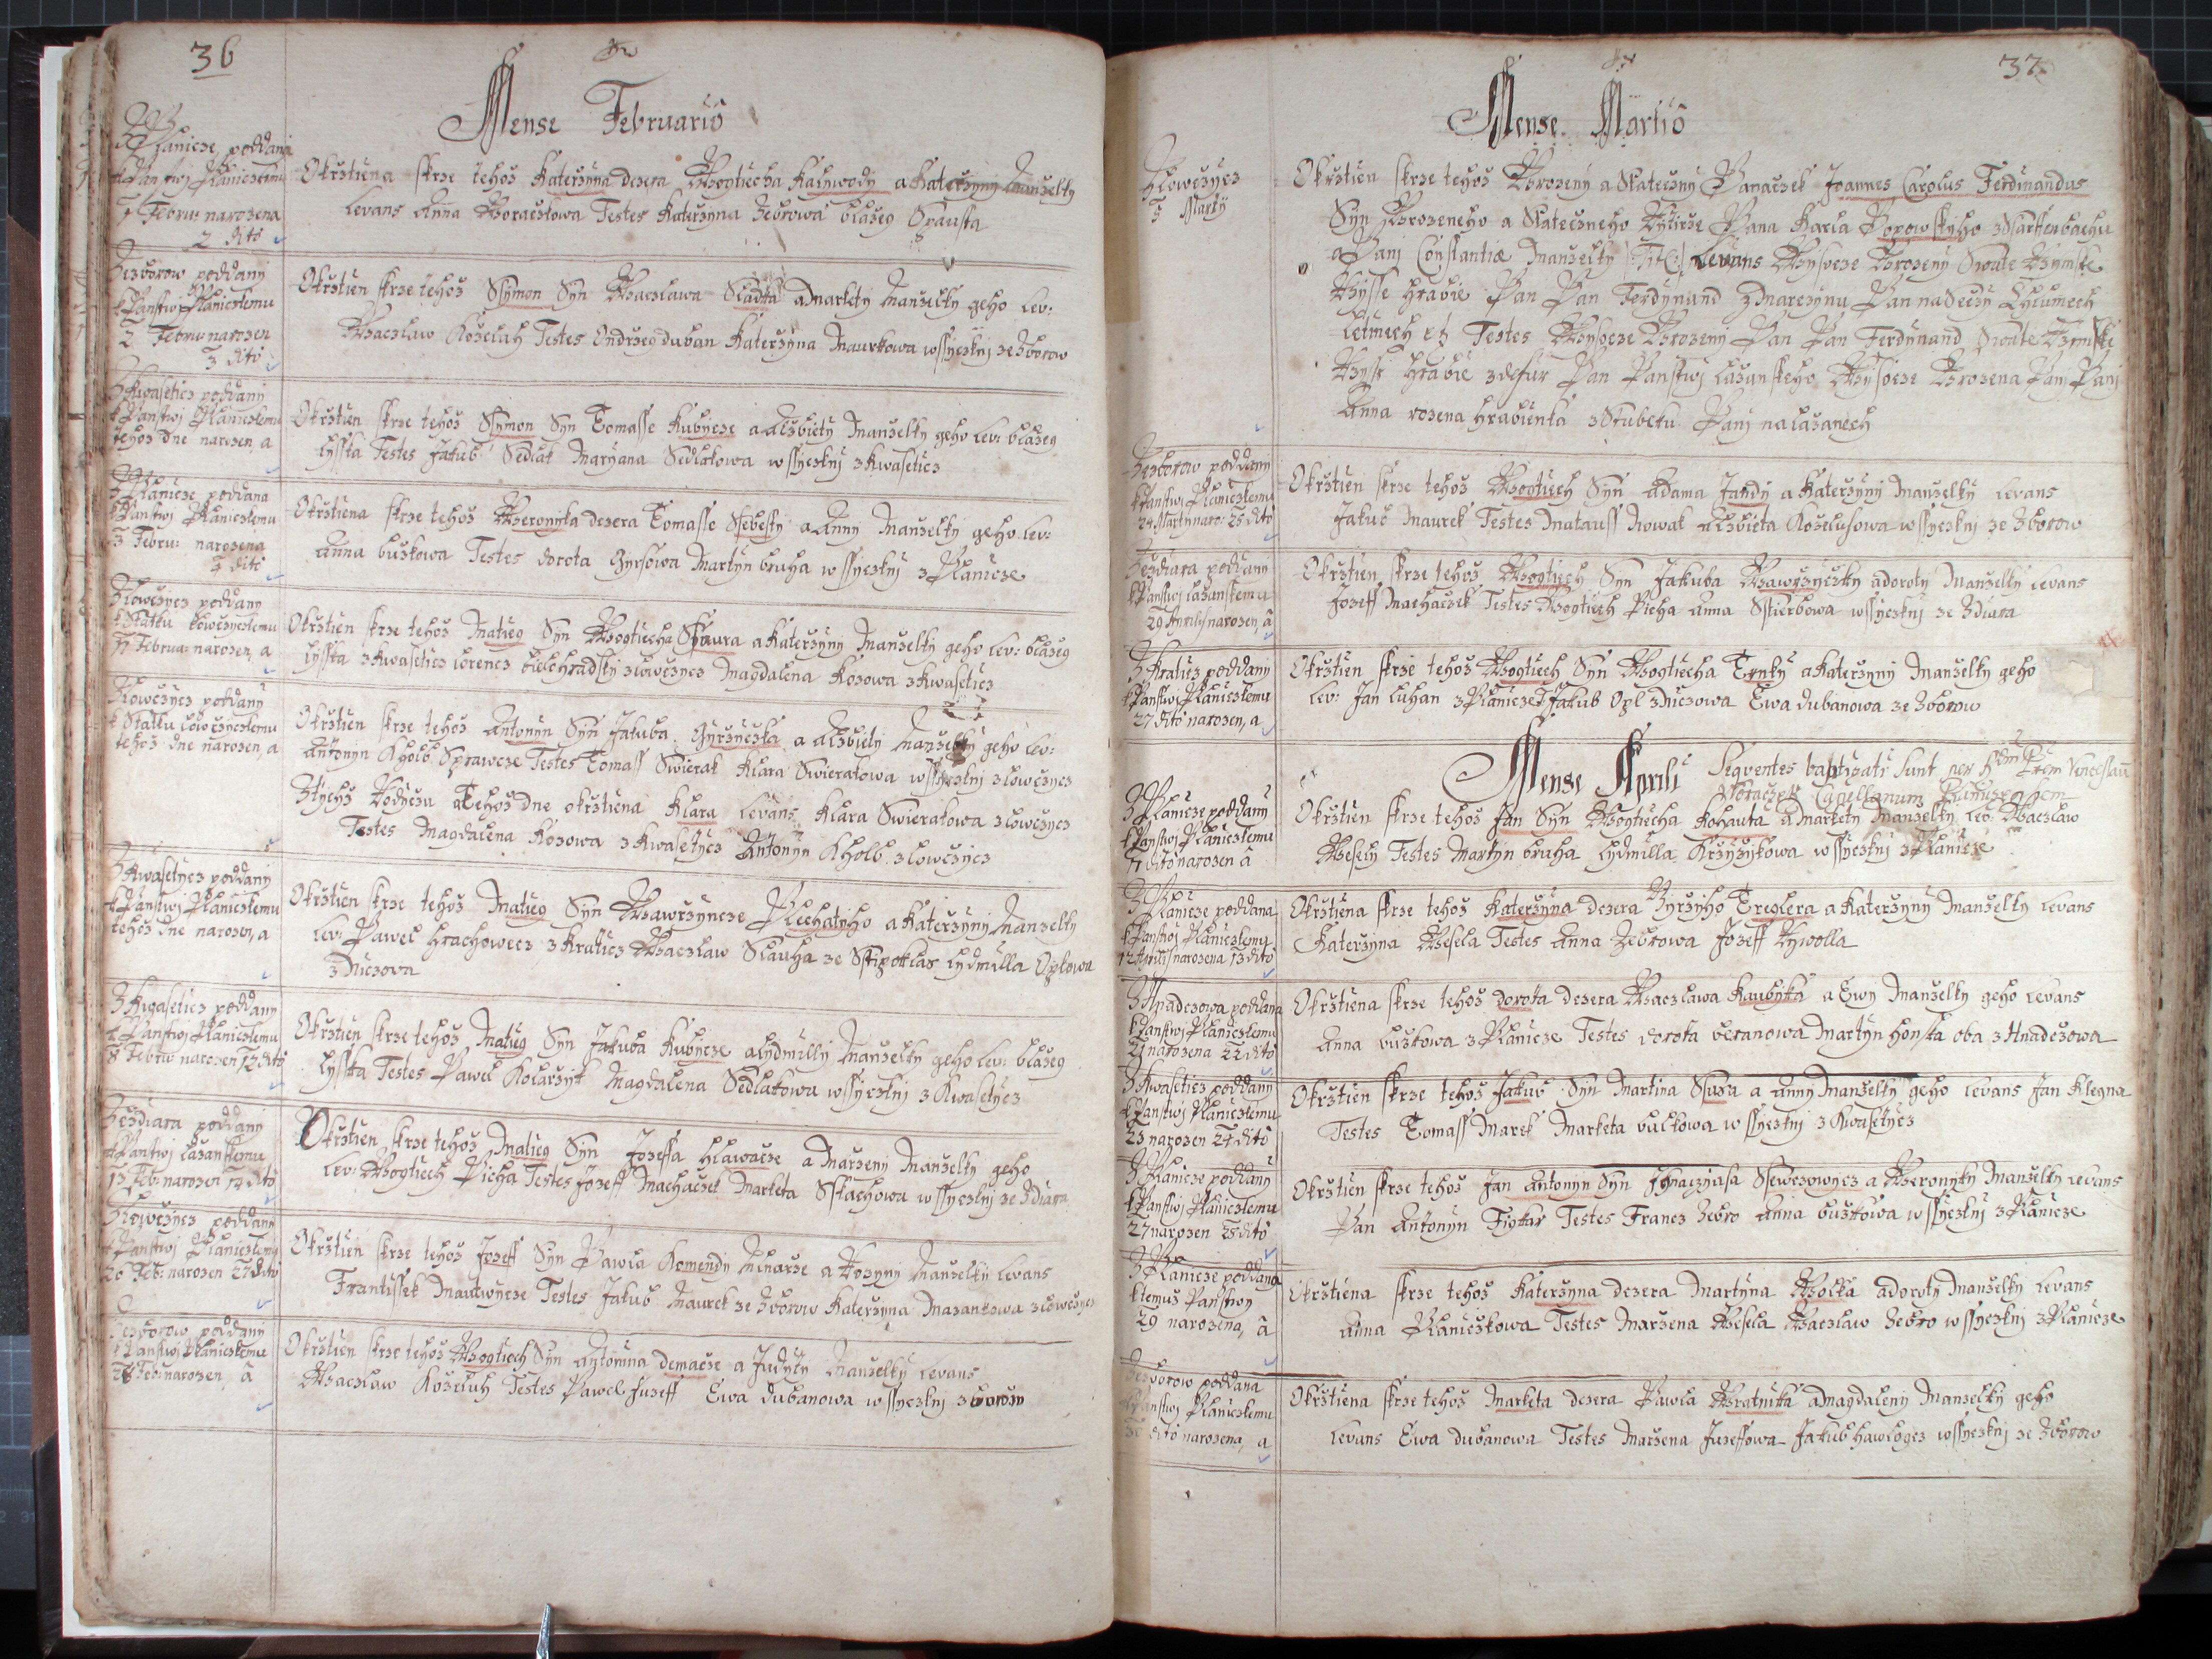 36
Mense Februario
Z Planicze poddana
k Panstwj Planiczkemu
1 Febru: narozena
2 dito
Okrztiena skrze tehoz Katerzyna dczera Wogtiecha Kalywody a Katerzyny Manzelky
Levans Anna Woraczkowa Testes Katerzyna Zebrowa blažeg Spausta
Ze zborow poddany
k Panstwj Planiczkemu
2 Febru: narozen
3 dito
Okrztien skrze tehoz Ssymon Syn Waczlawa Sladka a Markety Manzelky geho Lev:
Waczlaw Koželuh Testes Ondrzeg duban Katerzyna Maurkowa wssyczknj ze Zborow
Z Kwaseticz poddany
k Panstwj Planiczkemu
tehoz dne narozen, a
Okrztien skrze tehoz Ssymon Syn Tomasse Kubycze a Alzbiety Manzelky geho Lev: blažeg
Lysska Testes Jakub Sedlak Maryana Sedlakowa wssyczknj z Kwaseticz
Z Planicze poddana
k Panstwj Planiczkemu
3 Febru: narozena
3 dito
Okrztiena skrze tehoz Weronyka dczera Tomasse Ssebesty a Anny Manzelky geho Lev:
Anna buzkowa Testes dorota Gyrsowa Martyn bruha wssyczknj z Planicze
Z Lowczycz poddany
k Statku Lowczyczkemu
7 Februa: narozen, a
Okrztien skrze tehoz Matieg Syn Wogtiecha Spaura a Katerzyny Manzelky geho Lev: blažeg
Lysska z Kwaseticz Lorencz bielohradsky z Lowczycz Magdalena Kozowa z Kwaseticz
Z Lowczycz poddany
k Statku Lowczyczkemu
tehoz dne narozen, a
Okrztien skrze tehoz Antonyn Syn Jakuba Gyrzyczka a Alzbiety Manzelky geho Lev:
Antonyn Kholb Sprawcze Testes Tomass Swierak Klara Swierakowa wssyczknj z Lowczycz
Ztychz Rodyczu a Tehoz dne okrztiena Klara Levans Klara Swierakowa z Lowczycz
Testes Magdalena Kozowa z Kwasetycz Antonyn Kholb z Lowczycz
Z Kwasetycz poddany
k Panstwj Planiczkemu
tehoz dne narozen, a
Okrztien skrze tehoz Matieg Syn Wawrzyncze Plechatyho a Katerzyny Manzelky
Lev: Pawel Hrachowecz z Kraticz Waczlaw Slauha ze Sstipoklas Lydmilla Oplowa
z Niczowa
Z Kwaseticz poddany
k Panstwj Planiczkemu
8 Febru: narozen 12 dito
Okrztien skrze tehoz Matieg Syn Jakuba Kubycze a Lydmilly Manzelky geho Lev: blažeg
Lysska Testes Pawel Kolarzyk Magdalena Sedlakowa wssyczknj z Kwasetycz
Ze zdiara poddany
k Panstwj Lažanskemu
13 Feb: narozen 14 dito
Okrztien skrze tehoz Matieg Syn Jozeffa Hlawacze a Marzeny Manzelky geho
Lev: Wogtiech Picha Testes Jozeff Machaczek Marketa Sstachowa wssyczknj ze Zdiara
Z Lowczycz poddany
k Panstwj Planiczkemu
26 Feb: narozen 27 dito
Okrztien skrze tehoz Jozeff Syn Pawla Komendy Mlnarze a Rozyny Manzelky Levans
Frantissek Mautwycze Testes Jakub Maurek ze Zborow Katerzyna Mazankowa z Lowczycz
Ze zborow poddany
k Panstwj Planiczkemu
28 Feb: narozen, a
Okrztien skrze tehoz Wogtiech Syn Antonina demacze a Judyty Manzelky Levans
Waczlaw Koželuh Testes Pawel Juzeff Ewa dubanowa wssyczknj z borow
37
Mense Martio
Z Lowczycz
3 Martij
Okrztien skrze tehoz Wrozeny a Stateczny Panaczek Joannes Carolus Ferdinandus
Syn Wrozeneho a Stateczneho Rytirze Pana Karla Popowskyho z Sarffenbachu
a Panj Constantiae Manzelky Levans Wysocze Wrozeny Swate Rzymske
Rzysse Hrabie Pan Pan Ferdynand z Marczynu Pan na Deczy Chlumech
Letinech etz Testes Wysocze Wrozeny Pan Pan Ferdynand Swate Rzymske
Rzyse Hrabie z defur Pan Panstwj Lažanskeho Wysocze Wrozena Panj Panj
Anna rozena Hrabienka z Stubeku Panj na Lažanech
Ze zborow poddany
k Panstwj Planiczkemu
24 Martij naro: 25 dito
Okrztien skrze tehoz Wogtiech Syn Adama Jandy a Katerzyny Manzelky Levans
Jakub Maurek Testes Matauss Nowak Alzbieta Koželuhowa wssyczknj ze Zborow
Ze zdiara poddany
k Panstwj Lažanskemu
29 Aprilis narozen, a
Okrztien skrze tehoz Wogtiech Syn Jakuba Wawrzyczky a doroty Manzelky Levans
Jozeff Machaczek Testes Wogtiech Picha Anna Sstierbowa wssyczknj ze Zdiara
Z Kraticz poddany
k Panstwj Planiczkemu
27 dito narozen, a
Okrztien skrze tehoz Wogtiech Syn Wogtiecha Trnky a Katerzyny Manzelky geho
Lev: Jan Luhan z Planicze T Jakub Opl z Niczowa Ewa dubanowa ze Zborow
Mense Aprili Seqventes baptizati sunt per
Woraczek Capellanum Planicensem
Z Planicze poddany
k Panstwj Planiczkemu
7 dito narozen a
Okrztien skrze tehoz Jan Syn Wogtiecha Kohauta a Markety Manzelky Lev: Waczlaw
Wesely Testes Martyn bruha Lydmilla Krzyzykowa wssyczknj z Planicze
Z Planicze poddana
k Panstwj Planiczkemu
12 Aprilis narozena 13 dito
Okrztiena skrze tehoz Katerzyna dczera Gyrzyho Treglera a Katerzyny Manzelky Levans
Katerzyna Wesela Testes Anna Zebrowa Jozeff Wywolla
Z Hnadczowa poddana
k Panstwj Planiczkemu
21 narozena 22 dito
Okrztiena skrze tehoz dorota dczera Waczlawa Kaubyka a Ewy Manzelky geho Levans
Anna buzkowa z Planicze Testes dorota beranowa Martyn Honska oba z Hnadczowa
Z Kwaseticz poddany
k Panstwj Planiczkemu
23 narozen 24 dito
Okrztien skrze tehoz Jakub Syn Martina Suxa a Anny Manzelky geho Levans Jan Klegna
Testes Tomass Marek Marketa bulkowa wssyczknj z Kwasetycz
Z Planicze poddany
k Panstwj Planiczkemu
27 narozen 28 dito
Okrztien skrze tehoz Jan Antonyn Syn Jhnaczyusa Ssewczowycz a Weronyky Manzelky Levans
Pan Antonyn Fiskar Testes Francz Zebro Anna buzkowa wssyczknj z Planicze
Z Planicze poddana
k temuz Panstwy
29 narozena, a
Okrztiena skrze tehoz Katerzyna dczera Martyna Wolka a doroty Manzelky Levans
Anna Planiczkowa Testes Marzena Wesela Waczlaw Zebro wssyczknj z Planicze
Ze zborow poddana
k Panstwj Planiczkemu
30 dito narozena, a
Okrztiena skrze tehoz Marketa dczera Pawla Wratnika a Magdaleny Manzelky geho
Levans Ewa dubanowa Testes Marzena Juzeffowa Jakub Hawlogcz wssyczknj ze Zborow